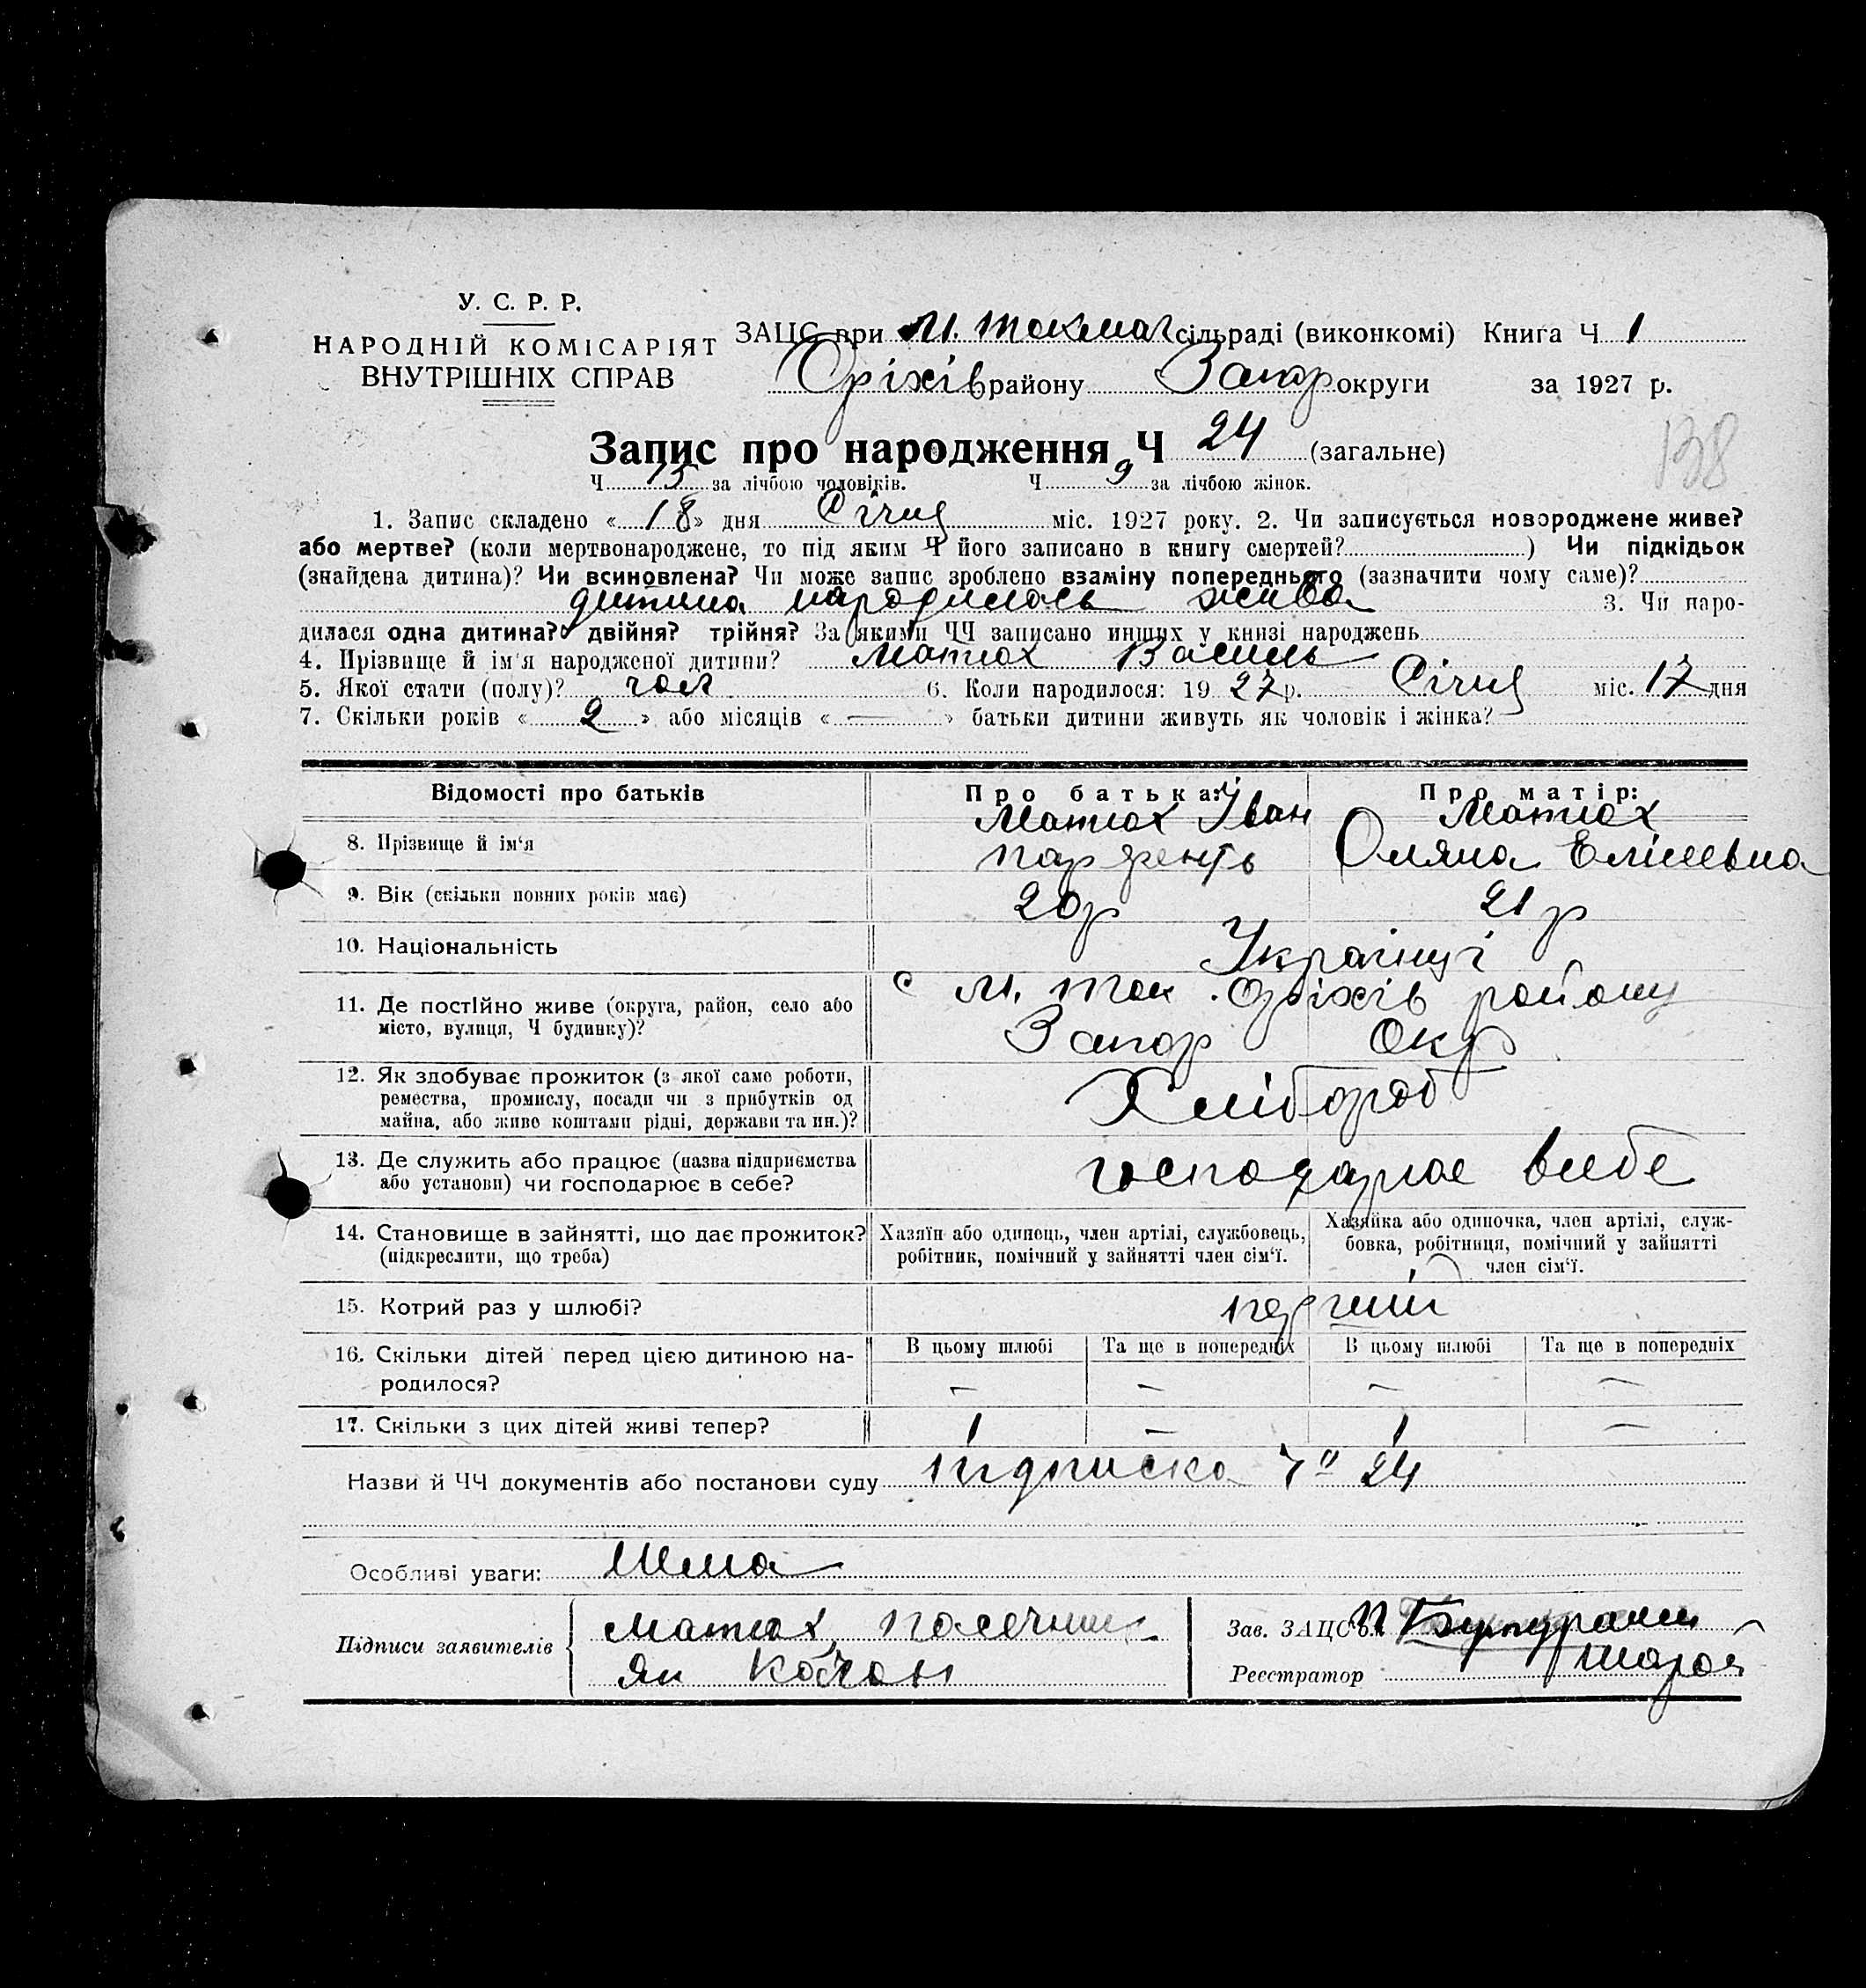 У. С. Р. Р.
НАРОДНІЙ КОМІСАРІЯТ
ВНУТРІШНІХ СПРАВ
ЗАЦС при М. Токмаг сільраді (виконкомі) Книга Ч 1
Оріхів району Запор округи за 1927 р.
138
Запис про народження Ч 24 (загальне)
Ч 15 за лічбою чоловіків. Ч 9 за лічбою жінок.
1. Запис складено « 18 » дня Січня міс. 1927 року. 2. Чи записується новороджене живе?
або мертве? (коли мертвонароджене, то під яким Ч його записано в книгу смертей? ) Чи підкідьок
(знайдена дитина)? Чи всиновлена? Чи може запис зроблено взаміну попереднього (зазначити чому саме)?
дитина народилась жива 3. Чи наро-
дилася одна дитина? двійня? трійня? За якими ЧЧ записано инших у книзі народжень
4. Прізвище й ім'я народженої дитини? Матюх Василь
5. Якої стати (полу)? чол 6. Коли народилося: 19 27 р. Січня міс. 17 дня
7. Скільки років « 2 » або місяців « — » батьки дитини живуть як чоловік і жінка?
Відомості про батьків Про батька: Про матір:
8. Прізвище й ім'я Матюх Іван Матюх
Оляна Елісевна
9. Вік (скільки повних років має) 20р 21 р
10. Національність Українці
11. Де постійно живе (округа, район, село або
місто, вулиця, Ч будинку)?
с М. Ток. Оріхів району
Запор Окр
12. Як здобуває прожиток (з якої само роботи,
ремества, промислу, посади чи з прибутків од
майна, або живе коштами рідні, держави та ин.)?
Хлібороб
13. Де служить або працює (назва підприємства
або установи) чи господарює в себе?
господарює всебе
14. Становище в зайнятті, що дає прожиток?
(підкреслити, що треба)
Хазяїн або одинець, член артілі, службовець,
робітник, помічний у зайнятті член сім'ї.
Хазяйка або одиночка, член артілі, служ-
бовка, робітниця, помічний у зайнятті
член сім'ї.
15. Котрий раз у шлюбі? перший
16. Скільки дітей перед цією дитиною на-
родилося?
В цьому шлюбі Та ще в попередніх В цьому шлюбі Та ще в попередніх
— — — —
17. Скільки з цих дітей живі тепер? 1 — 1 —
Назви й ЧЧ документів або постанови суду підписка Ч 24
Особливі уваги: Нема
Підписи заявителів Матюх,
Зав. ЗАЦС'ом
Реєстратор